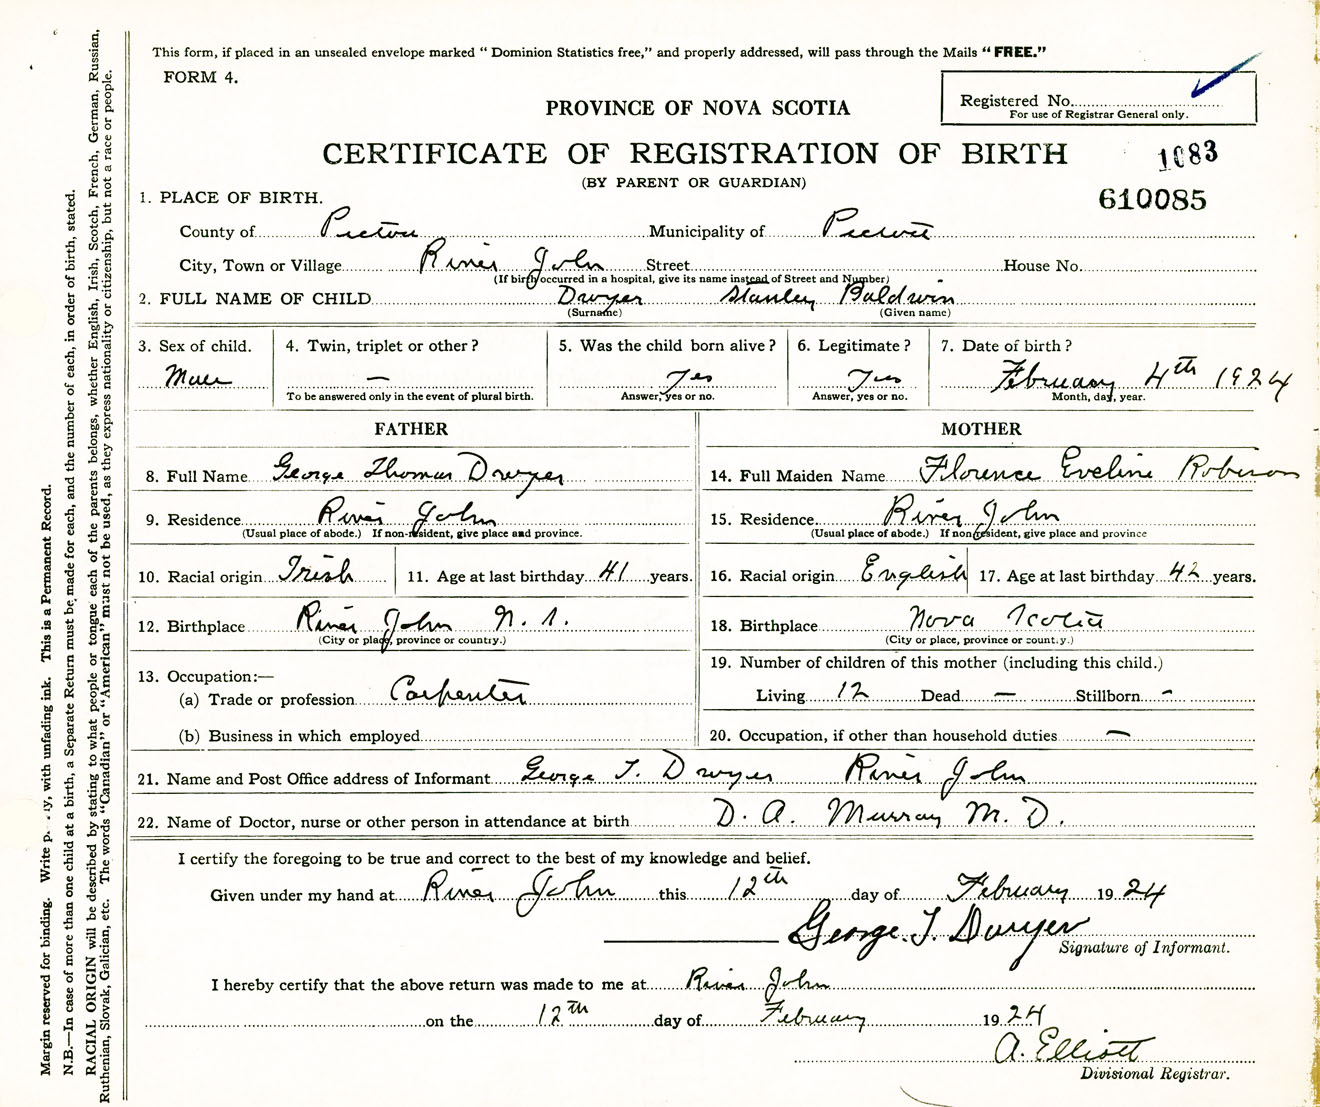 This form, if placed in an unsealed envelope marked “ Dominion Statistics free,” and properly addressed, will pass through the Mails “ FREE.”
FORM 4.
Registered No.
For use of Registrar General only.
PROVINCE OF NOVA SCOTIA
CERTIFICATE OF REGISTRATION OF BIRTH
1083
(BY PARENT OR GUARDIAN)
610085
1. PLACE OF BIRTH.
County of Pictou Municipality of Pictou
City, Town or Village River John Street House No.
(If birth occurred in a hospital, give its name instead of Street and Number)
2. FULL NAME OF CHILD Dwyer Stanley Baldwin
(Surname) (Given name)
3. Sex of child. 4. Twin, triplet or other? 5. Was the child born alive? 6. Legitimate? 7. Date of birth?
Male — Yes Yes February 4th 1924
To be answered only in the event of plural birth. Answer, yes or no. Answer, yes or no. Month, day, year.
FATHER MOTHER
8. Full Name George Thomas Dwyer 14. Full Maiden Name Florence Eveline Robinson
9. Residence River John 15. Residence. River John
(Usual place of abode.) If non-resident, give place and province. (Usual place of abode.) If non-resident, give place and province
10. Racial origin Irish 11. Age at last birthday 41 years. 16. Racial origin English 17. Age at last birthday 42 years.
12. Birthplace River John N. S. 18. Birthplace Nova Scotia
(City or place, province or country.) (City or place, province or country.)
19. Number of children of this mother (including this child.)
13. Occupation:—
(a) Trade or profession Carpenter Living 12 Dead — Stillborn -
(b) Business in which employed 20. Occupation, if other than household duties —
21. Name and Post Office address of Informant George T. Dwyer River John
22. Name of Doctor, nurse or other person in attendance at birth D. A. Murray M. D.
I certify the foregoing to be true and correct to the best of my knowledge and belief.
Given under my hand at River John this 12th day of February 1924
George. T. Dwyer
Signature of Informant.
I hereby certify that the above return was made to me at River John
on the 12th day of February 1924
A. Elliott
Divisional Registrar.
Margin reserved for binding. Write , with unfading ink. This is a Permanent Record.
N.B.—In case of more than one child at a birth, a Separate Return must be made for each, and the number of each, in order of birth, stated.
RACIAL ORIGIN will be described by stating to what people or tongue each of the parents belongs, whether English, Irish, Scotch, French, German, Russian,
Ruthenian, Slovak, Galician, etc. The words “Canadian” or “American” must not be used, as they express nationality or citizenship, but not a race or people.